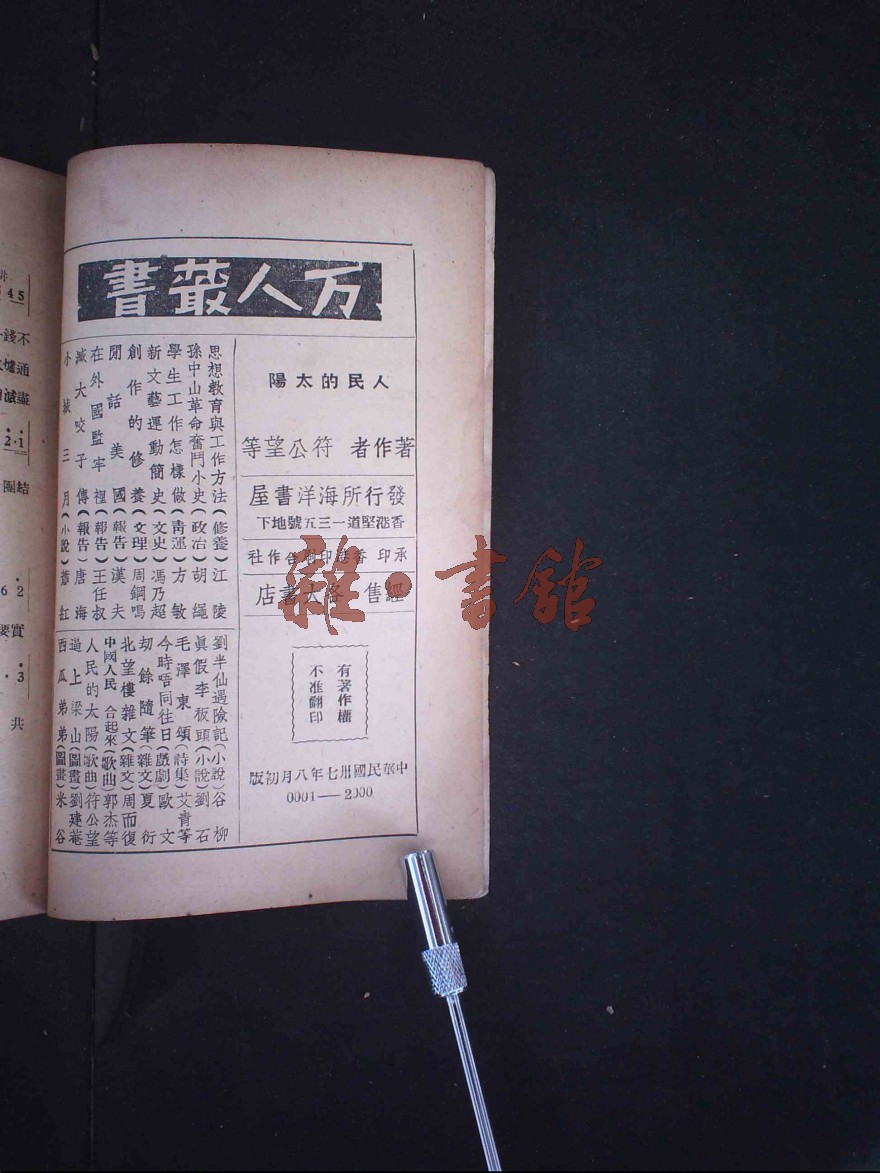 万人叢書
人民的太陽
著作者 符公望等
發行所海洋書屋
香港堅道一三五號地下
承印 香港印刷合作社
經售 各大書店
有著作權
不准翻印
中華民國卅七年八月初版
0001—2000
思想教育與工作方法(修養)江陵
孫中山革命奮鬥小史(政治)胡繩
學生工作怎樣做(青運)方敏
新文藝運動簡史(文史)馮乃超
創作的修養(文理)周鋼鳴
閒話美國(報告)漢夫
在外國監牢裡(報告)王任叔
滅大咬子傳(報告)唐海
小城三月(小說)蕭紅
劉半仙遇險記(小說)谷柳
眞假李板頭(小說)劉石
毛澤東頌(詩集)艾青等
今時唔同往日(戲劇)歐文
劫餘隨筆(雜文)夏衍
北望樓雜文(雜文)周而復
中國人民合起來(歌曲)郭杰等
人民的太陽(歌曲)符公望
逼上梁山(圖畫)劉建菴
西瓜弟弟(圖畫)米谷
雜·書館
545
不錢
通爐
盡滅
2·1
結團
62
要實
·3
共